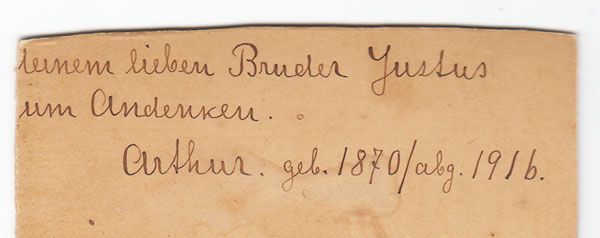 einem lieben Bruder Justus
um Andenken.
Arthur. geb. 1870/abg. 1916.